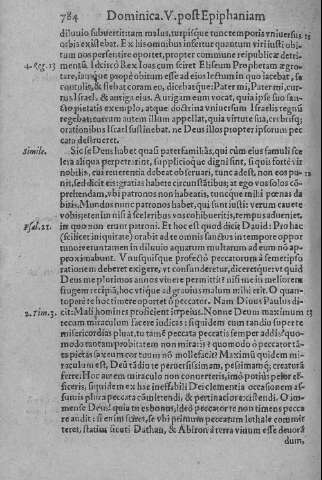 784 Dominica. V. post Epiphaniam
diluuio submertitutam malus, turpisque tunc temporis vniuersus
orbis existebat. Ex his omnibus infertur quantum viri iusti obi-
tum nos persentire oportet, propter commune reipublicæ detri-
4. Reg. 13 mentū. Idcircò Rex Ioas cum sciret Eliseum Prophetam ægro-
tare, iamque propè obitum esse ad eius lectum in quo iacebat, se
contulit, & flebat coram eo, dicebatque: Pater mi, Pater mi, cur-
rus Israel, & auriga eius. Aurigam enim vocat, quia ipse suo san-
cto pietatis exemplo, atque doctrina vniuersum Israelis regnū
regebat: currum autem illum appellat, quia virtute sua, crebrisq;
orationibus Israel sustinebat. ne Deus illos propter ipsorum pec
cata destrueret.
Simile. Sic se Deus habet quasi paterfamiliâs, qui cùm eius famuli sce
lera aliqua perpetrarint, supplicioque digni sint, si quis fortè vir
nobilis, cui reuerentia debeat obseruari, tunc adest, non eos pu-
nit, sed dicit eis: gratias habete circunstātibus; at ego vos solos cō-
prehendam, vbi patronos non habeatis, tuncque mihi pœnas da
bitis. Mundus nunc patronos habet, qui sunt iusti: verum cauete
vobis, etenim nisi à sceleribus vos cohibueritis, tempus adueniet,
Psal. 21. in quo non erant patroni. Et hoc est quod dicit Dauid: Pro hac
(scilicet iniquitate) orabit ad te omnis sanctus in tempore oppor
tuno: veruntamen in diluuio aquarum multarum ad eum nō ap-
proximabunt. Vnusquisque profectò peccatorum à semetipso
rationem deberet exigere, vt confunderetur, diceretque: vt quid
Deus me plurimos annos viuere permittit? nisi me in meliorem
frugem recipiā, hoc vtique ad grauius malum mihi erit. O quan-
topere te hoc timere oportet ô peccator. Nam Diuus Paulus di-
2. Tim. 3. cit: Mali homines proficient in peius. Nonne Deum maximum
tecum miraculum facere iudicas; siquidem cum tandiu superte
misericordias pluat, tu tamē peccata peccatis semper addis? quo-
modo tantam probitatem non miraris? quomodo ô peccator tā-
ta pietas saxeum cor tuum nō mollefacit? Maximū quidem mi-
raculum est, Deū tādiu te peruersissimam, pessimamq; creaturā
ferre. Hoc autem miraculo non conuerteris, imò potiùs peior ef-
ficeris, siquidem ex hac ineffabili Dei clementia occasionem as-
sumis plura peccata cōmittendi, & pertinacior existendi. O im-
mense Deus! quia tu es bonus, ideò peccator te non timens pecca
re audit: si enim sciret, se vbi primum peccatum lethale commit
teret, statim sicuti Dathan, & Abiron à terra viuum esse deuorā
dum,